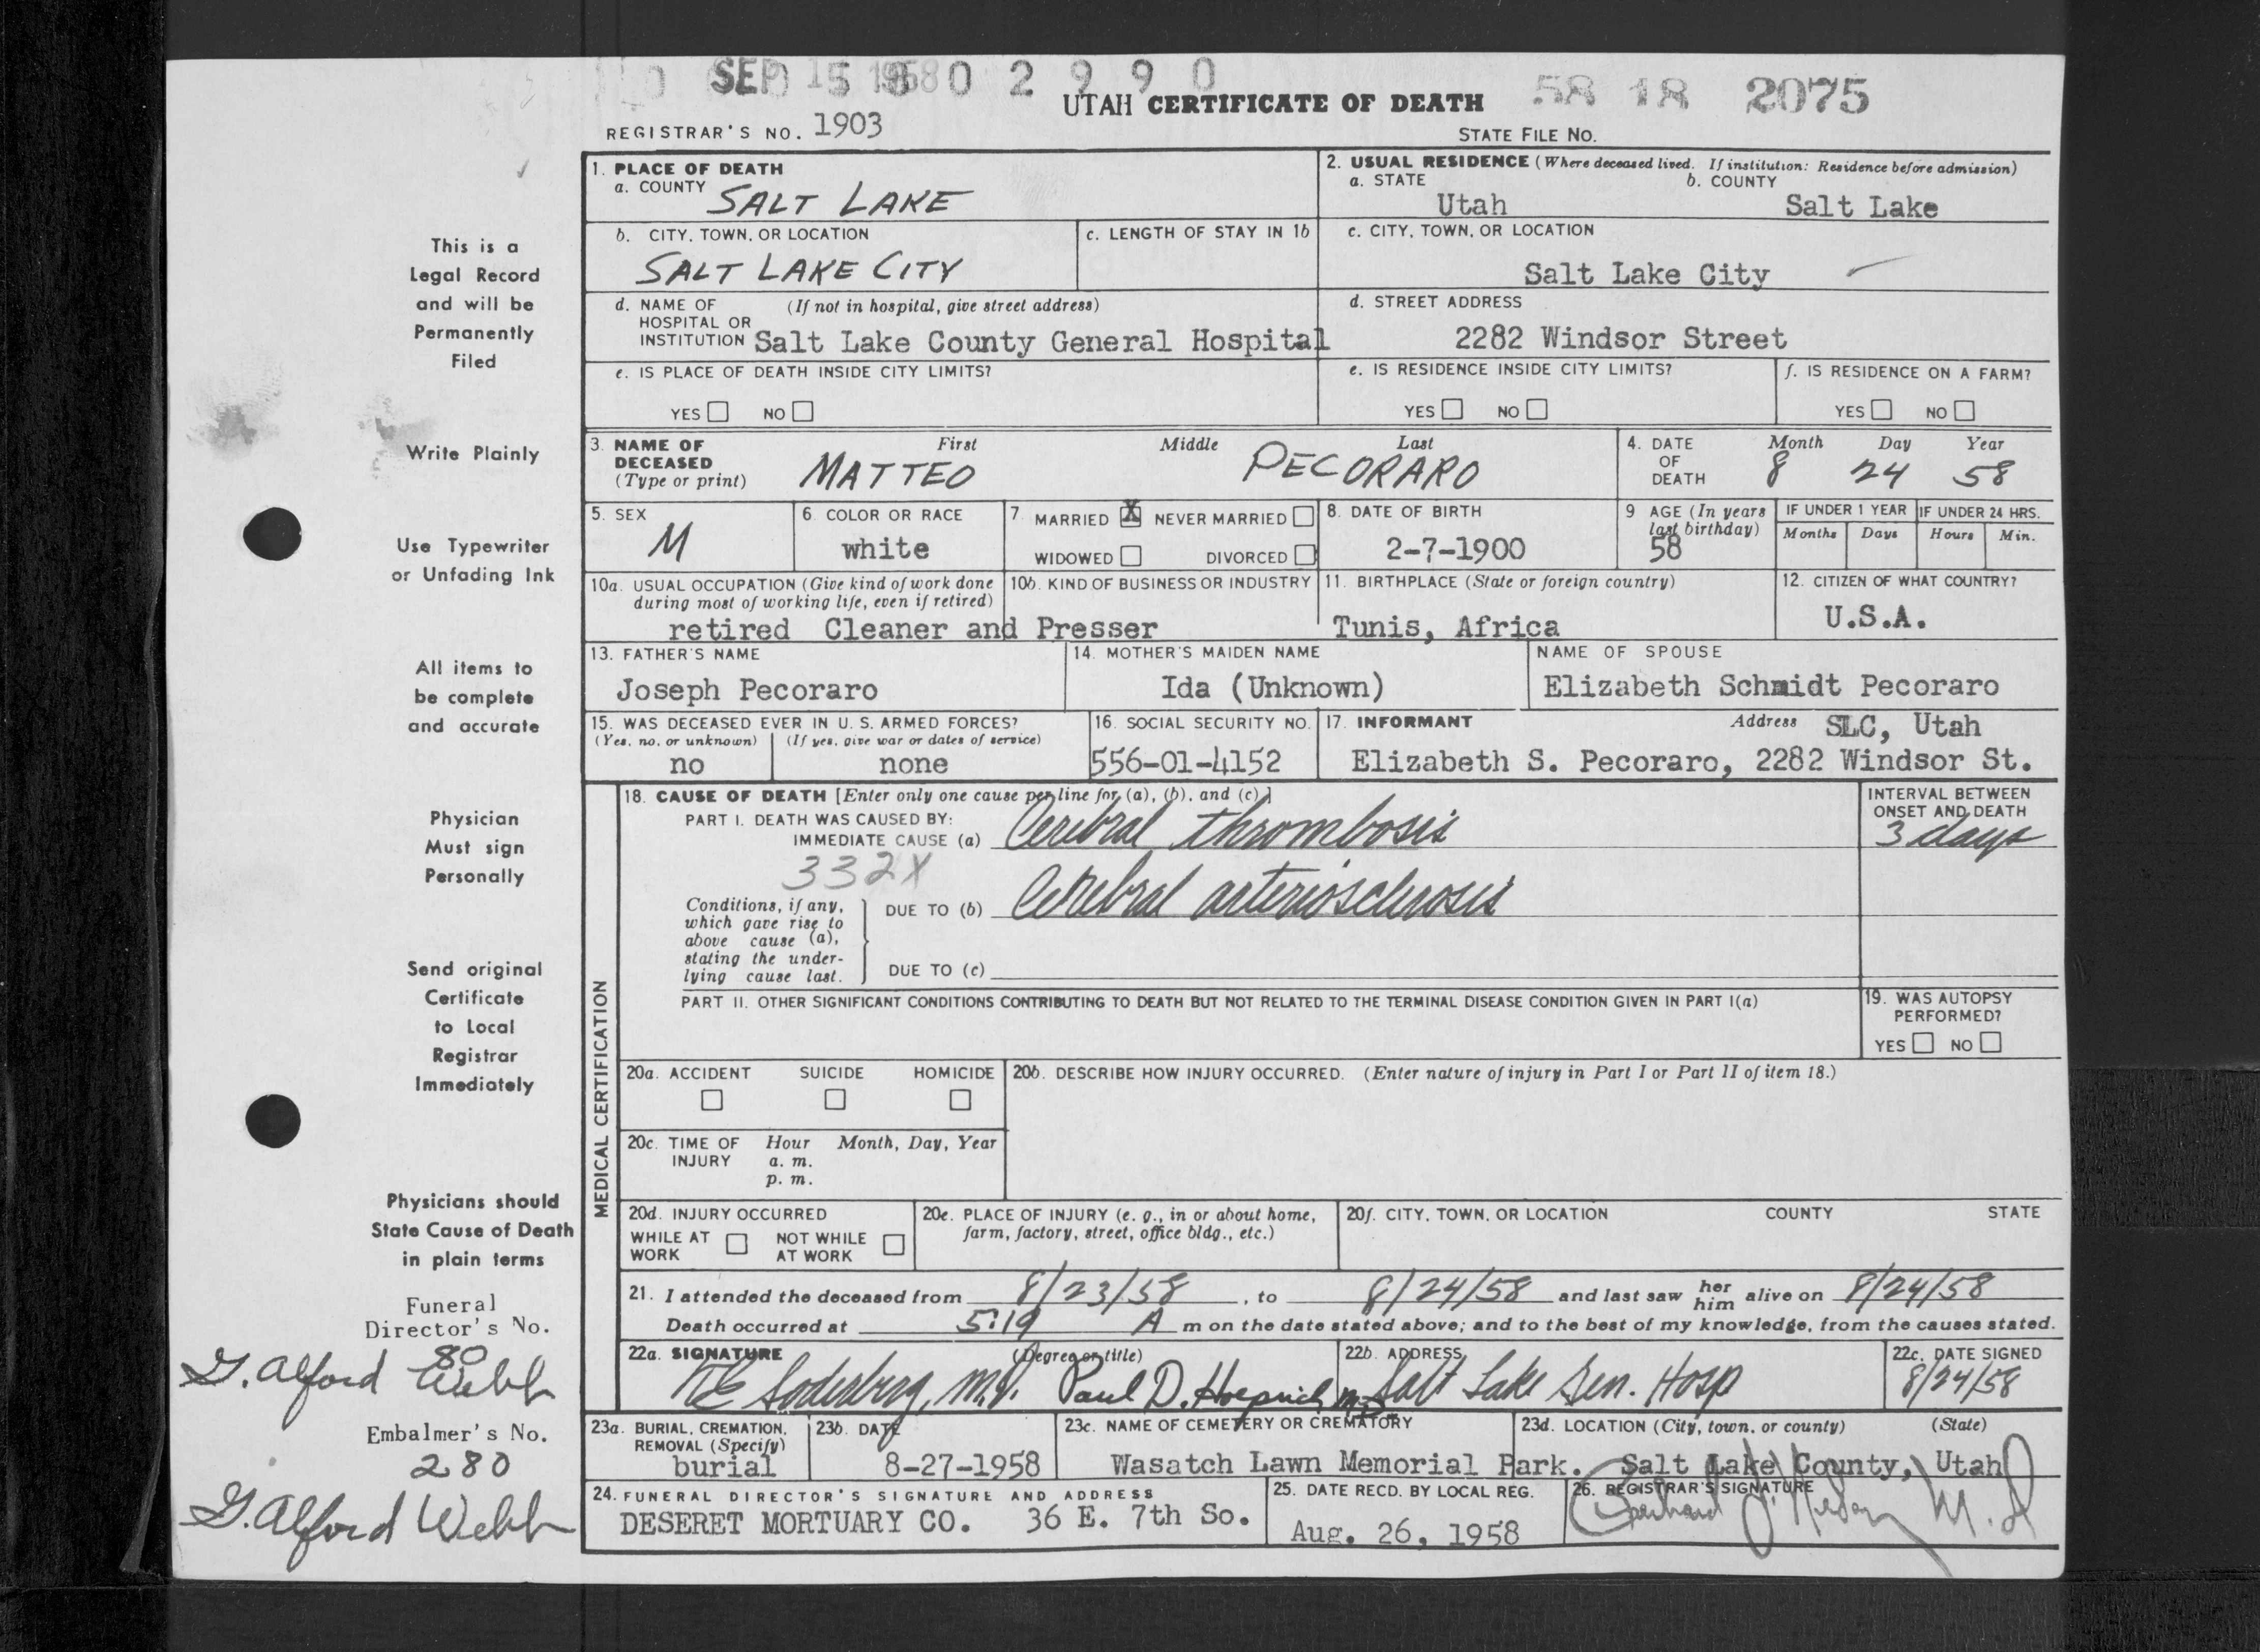 SEP 15 1958 0 2 9 9 0
UTAH CERTIFICATE OF DEATH
58 18 2075
REGISTRAR'S NO. 1903
STATE FILE NO.
This is a
Legal Record
and will be
Permanently
Filed
Write Plainly
Use Typewriter
or Unfading Ink
All items to
be complete
and accurate
Physician
Must sign
Personally
Send original
Certificate
to Local
Registrar
Immediately
Physicians should
State Cause of Death
in plain terms
Funeral
Director's No.
80
G. Alford Webb
Embalmer's No.
280
G. Alford Webb
1. PLACE OF DEATH
a. COUNTY SALT LAKE
2. USUAL RESIDENCE (Where deceased lived. If institution: Residence before admission)
a. STATE Utah
b. COUNTY Salt Lake
b. CITY, TOWN, OR LOCATION
SALT LAKE CITY
c. LENGTH OF STAY IN 1b
c. CITY, TOWN, OR LOCATION
Salt Lake City
d. NAME OF (If not in hospital, give street address)
HOSPITAL OR
INSTITUTION Salt Lake County General Hospital
d. STREET ADDRESS
2282 Windsor Street
e. IS PLACE OF DEATH INSIDE CITY LIMITS?
YES NO
e. IS RESIDENCE INSIDE CITY LIMITS?
YES NO
f. IS RESIDENCE ON A FARM?
YES NO
3. NAME OF DECEASED
(Type or print)
First Middle Last
MATTEO PECORARO
4. DATE OF DEATH
Month Day Year
8 24 58
5. SEX
M
6. COLOR OR RACE
white
7. MARRIED X NEVER MARRIED
WIDOWED DIVORCED
8. DATE OF BIRTH
2-7-1900
9 AGE (In years
last birthday)
58
IF UNDER 1 YEAR
Months Days
IF UNDER 24 HRS.
Hours Min.
10a. USUAL OCCUPATION (Give kind of work done
during most of working life, even if retired)
10b. KIND OF BUSINESS OR INDUSTRY
retired Cleaner and Presser
11. BIRTHPLACE (State or foreign country)
Tunis, Africa
12. CITIZEN OF WHAT COUNTRY?
U.S.A.
13. FATHER'S NAME
Joseph Pecoraro
14. MOTHER'S MAIDEN NAME
Ida (Unknown)
NAME OF SPOUSE
Elizabeth Schmidt Pecoraro
15. WAS DECEASED EVER IN U. S. ARMED FORCES?
(Yes, no, or unknown) (If yes, give war or dates of service)
no none
16. SOCIAL SECURITY NO.
556-01-4152
17. INFORMANT Address SLC, Utah
Elizabeth S. Pecoraro, 2282 Windsor St.
MEDICAL CERTIFICATION
18. CAUSE OF DEATH [Enter only one cause per line for (a), (b), and (c).]
PART I. DEATH WAS CAUSED BY:
IMMEDIATE CAUSE (a) Cerebral thrombosis
332X
INTERVAL BETWEEN
ONSET AND DEATH
3 days
Conditions, if any,
which gave rise to
above cause (a),
stating the under-
lying cause last.
DUE TO (b) Cerebral arteriosclerosis
DUE TO (c)
PART II. OTHER SIGNIFICANT CONDITIONS CONTRIBUTING TO DEATH BUT NOT RELATED TO THE TERMINAL DISEASE CONDITION GIVEN IN PART I(a)
19. WAS AUTOPSY
PERFORMED?
YES NO
20a. ACCIDENT SUICIDE HOMICIDE
20b. DESCRIBE HOW INJURY OCCURRED. (Enter nature of injury in Part I or Part II of item 18.)
20c. TIME OF INJURY
Hour Month, Day, Year
a. m.
p. m.
20d. INJURY OCCURRED
WHILE AT WORK NOT WHILE AT WORK
20e. PLACE OF INJURY (e. g., in or about home,
farm, factory, street, office bldg., etc.)
20f. CITY, TOWN, OR LOCATION COUNTY STATE
21. I attended the deceased from 8/23/58, to 8/24/58 and last saw her him alive on 8/24/58
Death occurred at 5:19 A m on the date stated above; and to the best of my knowledge, from the causes stated.
22a. SIGNATURE (Degree or title)
Soderberg, M.D. Paul D. Hoeprich MD
22b. ADDRESS
Salt Lake Gen. Hosp
22c. DATE SIGNED
8/24/58
23a. BURIAL, CREMATION,
REMOVAL (Specify)
burial
23b. DATE
8-27-1958
23c. NAME OF CEMETERY OR CREMATORY
Wasatch Lawn Memorial Park.
23d. LOCATION (City, town, or county) (State)
Salt Lake County, Utah
24. FUNERAL DIRECTOR'S SIGNATURE AND ADDRESS
DESERET MORTUARY CO. 36 E. 7th So.
25. DATE RECD. BY LOCAL REG.
Aug. 26, 1958
26. REGISTRAR'S SIGNATURE
M.D